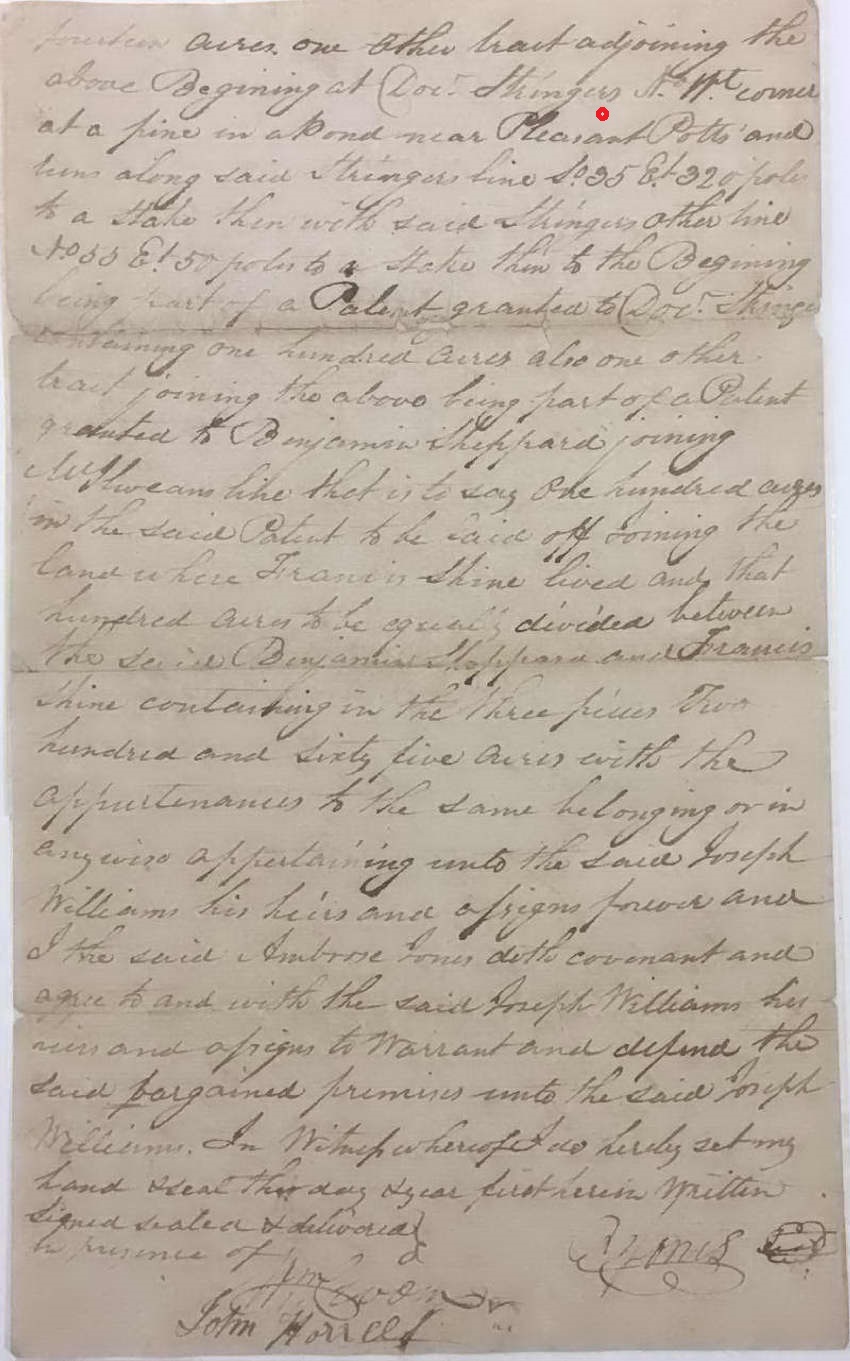 fourteen acres. one other tract adjoining the
above Begining at Docr. Stringers No. Wt. corner
at a pine in a Pond near Pleasant Potts and
runs along said Stringers line So. 35 Et. 320 poles
to a Stake then with said Stringers other line
No 55 Et. 50 poles to a Stake then to the Begining
being part of a Patent granted to Docr. Stringer
containing one hundred acres also one other
tract joining the above being part of a Patent
granted to Benjamin Sheppard joining
line that is to say One hundred acres
in the said Patent to be laid off Joining the
land where Francis Shine lived and that
hundred acres to be equally divided between
the said Benjamin Sheppard and Francis
Shine containing in the three pieces Two
hundred and sixty five acres with the
appurtenances to the same belonging or in
anywise appertaining unto the said Joseph
Williams his heirs and assigns forever and
I the said Ambrose Jones doth covenant and
agree to and with the said Joseph Williams his
heirs and assigns to Warrant and defend the
said bargained premises unto the said Joseph
Williams. In Witness whereof I do hereby set my
hand & seal the day & year first herein Written
Signed sealed & delivered
in presence of
Jones Seal
John Horrell